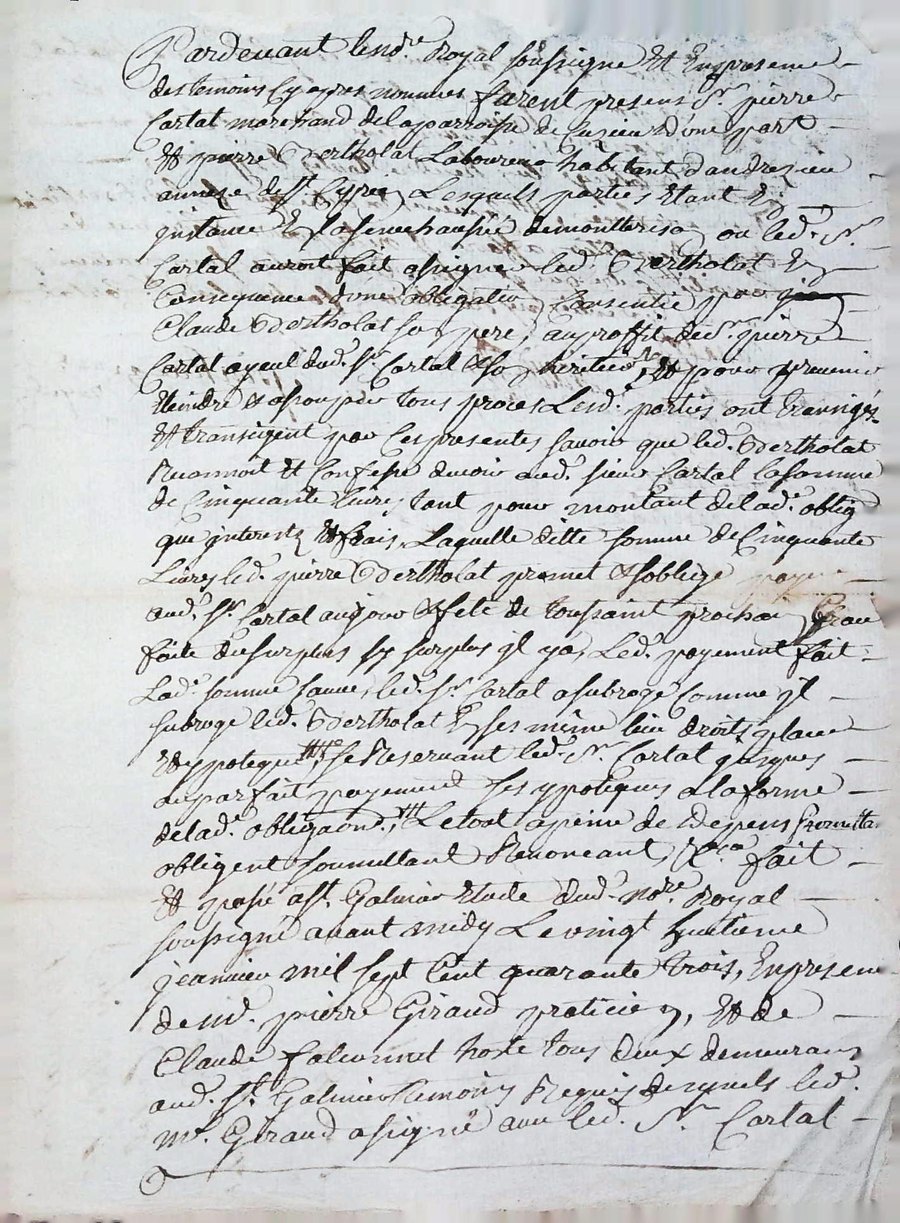 Pardevant le no.re Royal soussigné Et Enpresence
des temoins Cy apres nommes furent presens Sr. pierre
Cartal marchand delaparroisse de d'une part
Et pierre Bertholat Laboureur habitant d'andrezieu
annexe de St. Cyprien Lesquels parties Etant En
jnstance En lasenechaussée demontbrison ou led. Sr.
Cartal auroit fait assigner led. Bertholat En
Consequence d'une obligation Consentie par
Claude Bertholat son pere, auproffit de Sr. pierre
Cartal ayeul dud. Sr. Cartal & son heritier, Et pour prevenir
Eteindre & assoupir tous proces Lesd. parties ont transigés
Et transigent par Cespresentes savoir que led. Bertholat
Reconnoit Et Confesse devoir aud. sieur Cartal lasomme
de Cinquante livres tant pour montant delad. oblig.
que jnterets & frais, Laquelle ditte somme de Cinquante
Livres led. pierre Bertholat promet & soblige payer
aud. Sr. Cartal aujour & fete de toussaint prochain,
faite dusurplus sy surplus jl ya, Led. payement fait
Lad. somme sauve, led. Sr. Cartal asubrogé Comme jl
subroge led. Bertholat En ses même lieu droits place
& ypoteques se Reservant led. Sr. Cartal jusques
auparfait payement ses ypoteques alaforme
delad. obligaon., Letout apeine de Depens promettant
obligent soumettant Renoncant, &ca. fait
Et passé a St. Galmier Etude dud. no.re Royal
soussigné avant midy Levingt huitieme
jeanvier mil sept Cent quarante trois, Enpresence
de mr. pierre Giraud praticien, Et de
Claude hoste tous deux demeurans
aud. St. Galmier temoins Requis desquels led.
mr. Giraud asigné avec led. Sr. Cartal